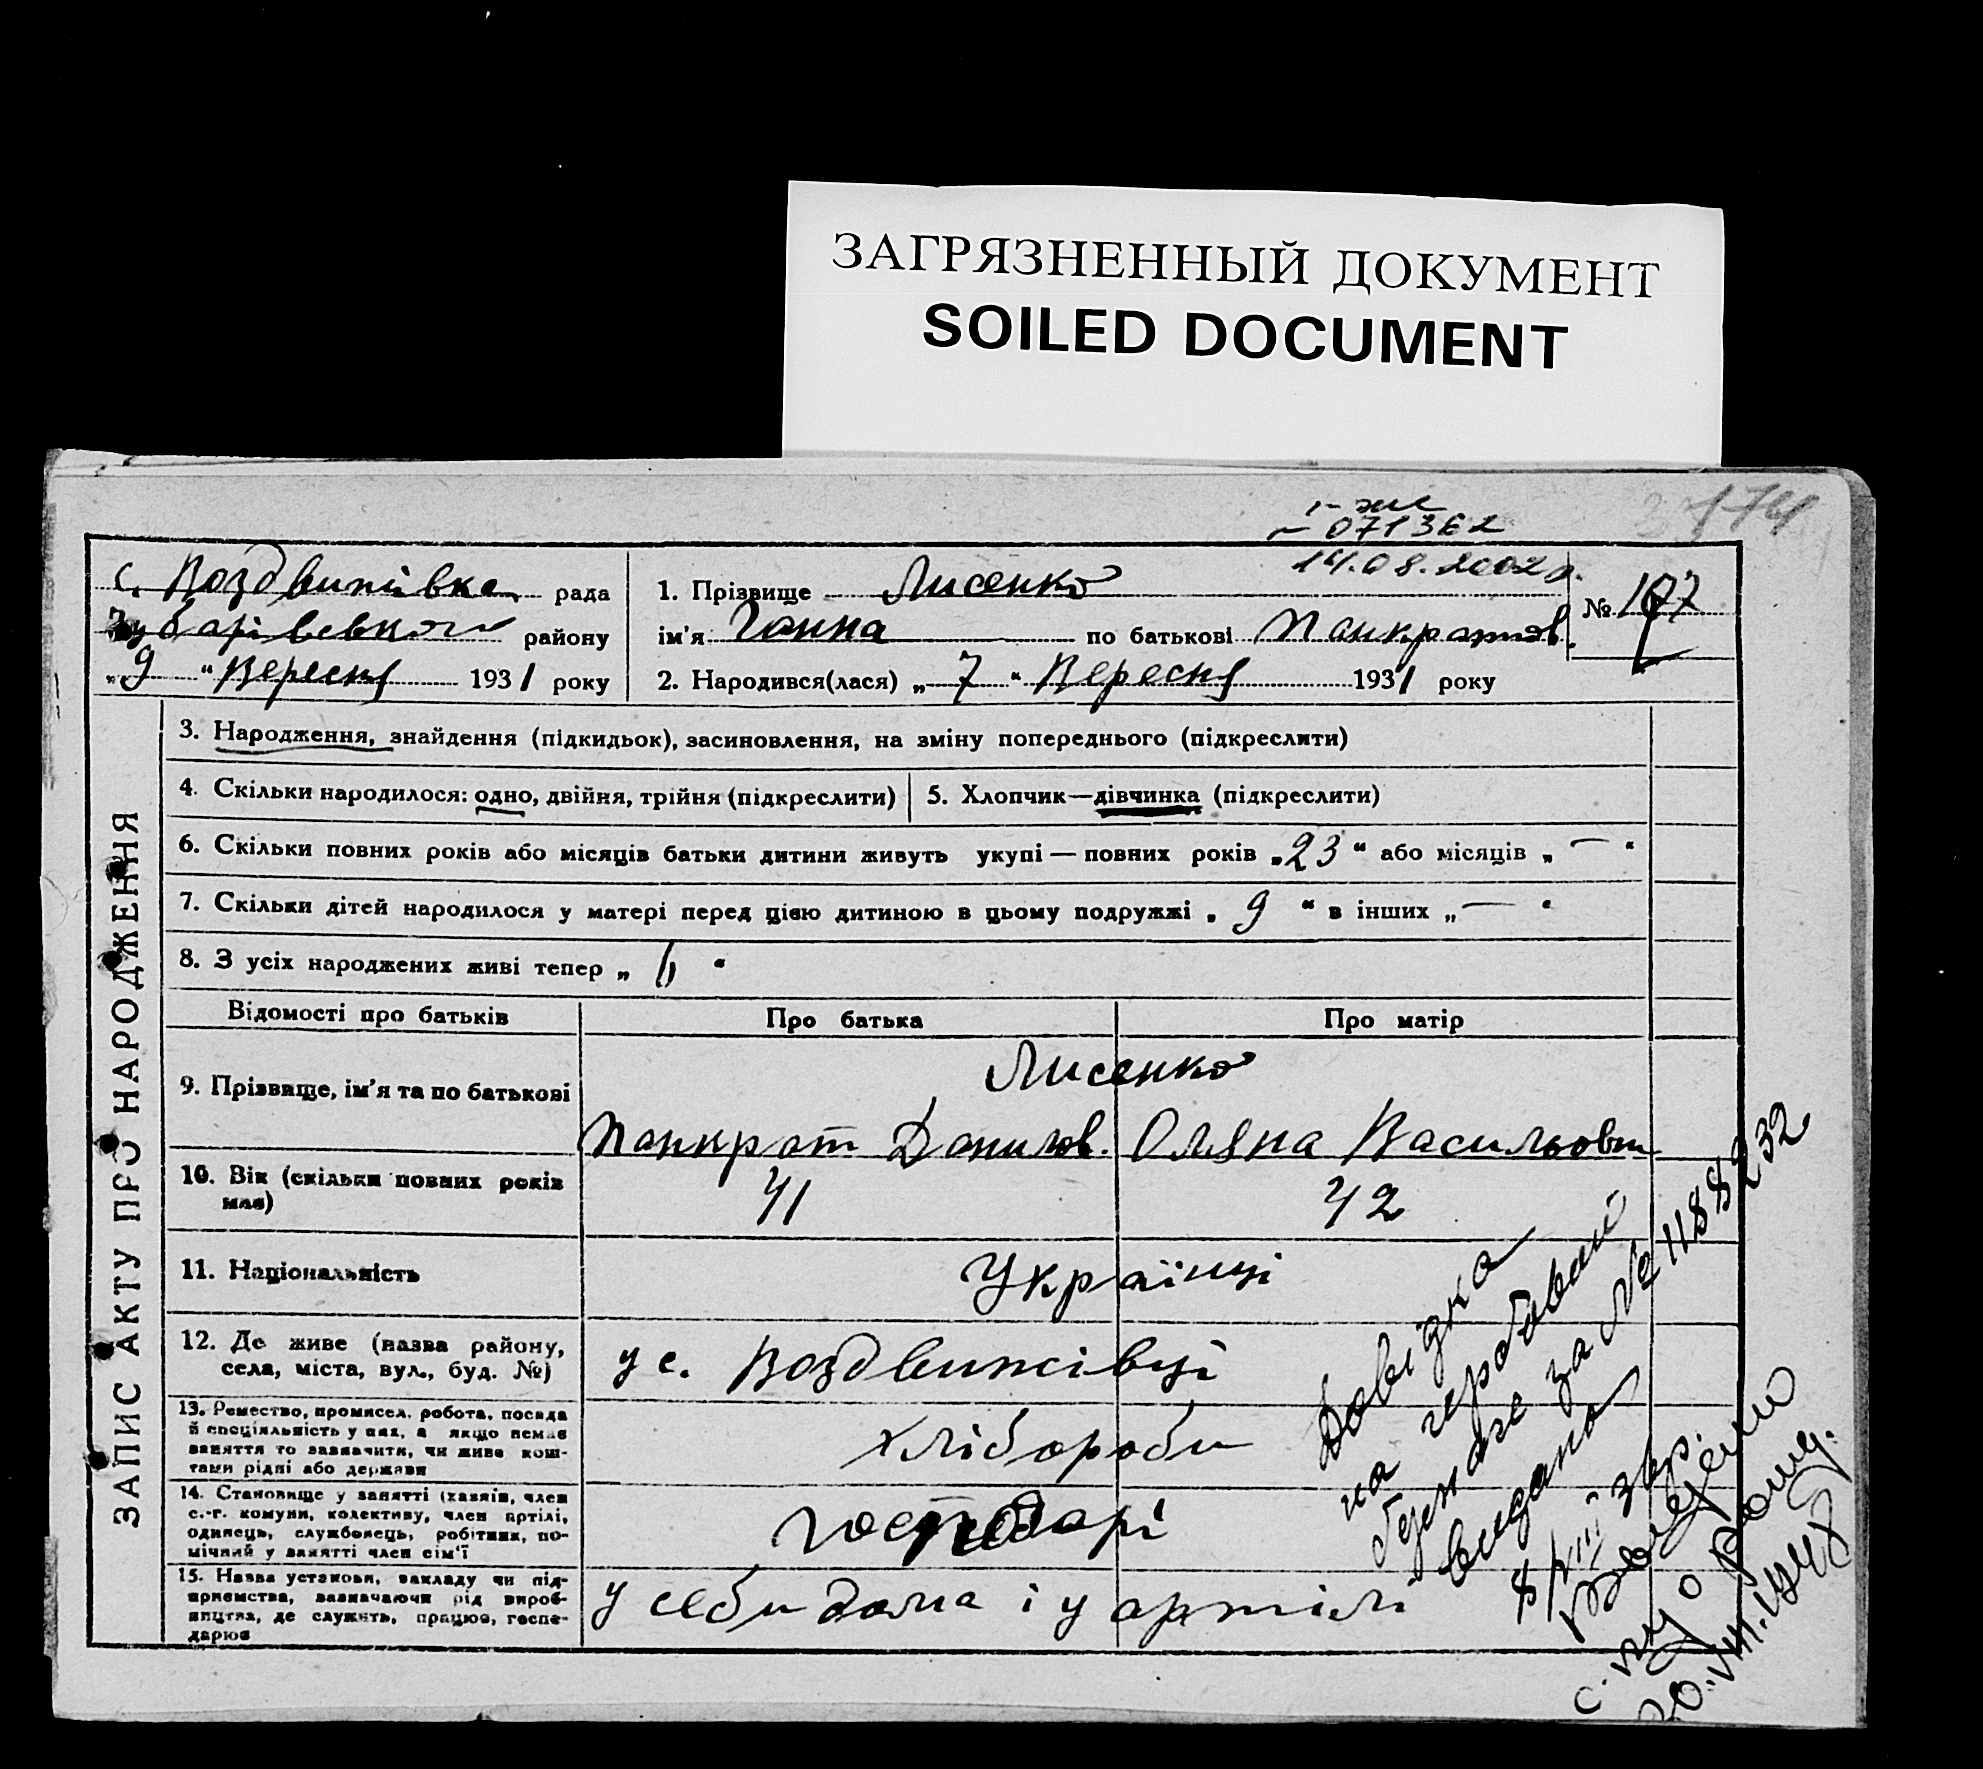 ЗАГРЯЗНЕННЫЙ ДОКУМЕНТ
SOILED DOCUMENT
174
071362
14.08.2002р.
с. Воздвижівка рада
району
„9“ Вересня 1931 року
1. Прізвище Лисенко
ім'я Ганна по батькові Панкратов.
2. Народився(лася) „7“ Вересня 1931 року
№ 177
ЗАПИС АКТУ ПРО НАРОДЖЕННЯ
3. Народження, знайдення (підкидьок), засиновлення, на зміну попереднього (підкреслити)
4. Скільки народилося: одно, двійня, трійня (підкреслити)
5. Хлопчик—дівчинка (підкреслити)
6. Скільки повних років або місяців батьки дитини живуть укупі — повних років „23“ або місяців „—“
7. Скільки дітей народилося у матері перед цією дитиною в цьому подружжі „9“ в інших „—“
8. З усіх народжених живі тепер „ “
Відомості про батьків
Про батька
Про матір
9. Прізвище, ім'я та по батькові
Лисенко
Панкрат Данилов. Оляна Васильовн
10. Вік (скільки повних років
має)
41
42
11. Національність
Українці
12. Де живе (назва району,
села, міста, вул., буд. №)
у с. Воздвижівці
13. Ремество, промисел, робота, посада
й спеціяльність у них, а якщо немає
заняття то зазначити, чи живе кош-
тами рідні або держави
хлібороби
14. Становище у занятті (хазяїн, член
с.-г. комуни, колективу, член артілі,
одинець, службовець, робітник, по-
мічний у занятті член сім'ї
господарі
15. Назва установи, закладу чи під-
приємства, зазначаючи рід вироб-
ництва, де служить, працює, госпо-
дарює
у себи дома і у артілі
Довідка
на
за № 1188232
видана
20.VIII.1948